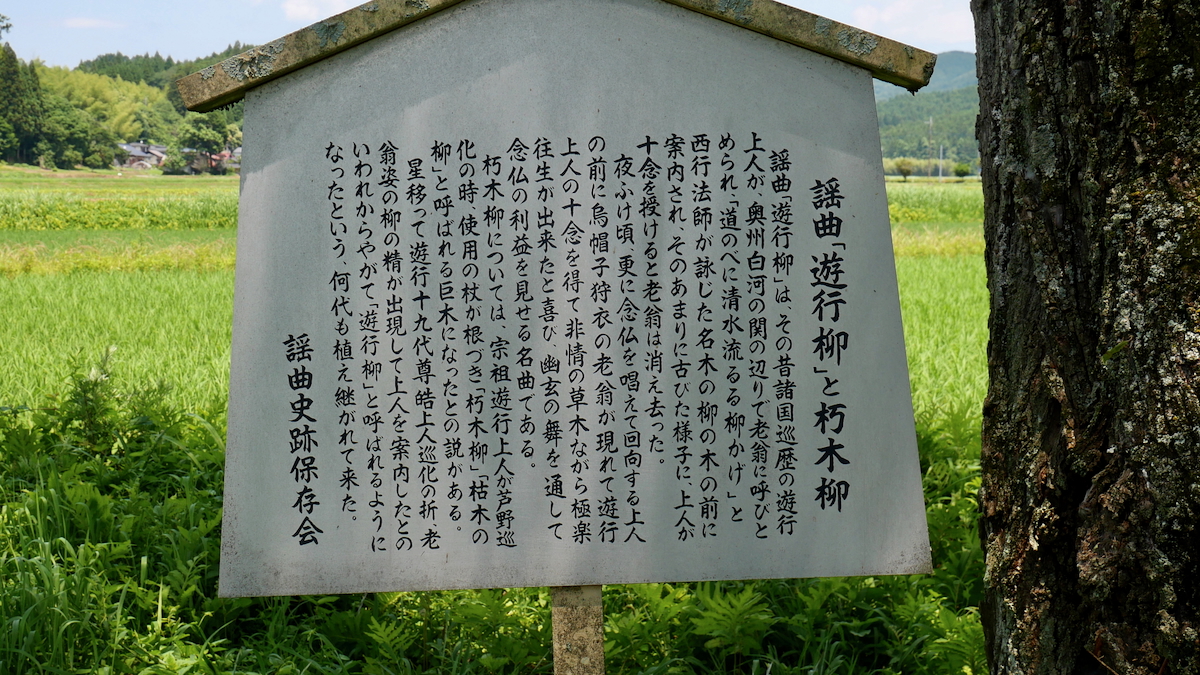 謡曲「遊行柳」と朽木柳
謡曲「遊行柳」は、その昔諸国巡歴の遊行
上人が、奥州白河の関の辺りで老翁に呼びと
められ、「道のべに清水流るる柳かげ」と
西行法師が詠じた名木の柳の木の前に
案内され、そのあまりに古びた様子に、上人が
十念を授けると老翁は消え去った。
夜ふけ頃、更に念仏を唱えて回向する上人
の前に烏帽子狩衣の老翁が現れて遊行
上人の十念を得て非情の草木ながら極楽
往生が出来たと喜び、幽玄の舞を通して
念仏の利益を見せる名曲である。
朽木柳については、宗祖遊行上人が芦野巡
化の時、使用の杖が根づき「朽木柳」「枯木の
柳」と呼ばれる巨木になったとの説がある。
星移って遊行十九代尊皓上人巡化の折、老
翁姿の柳の精が出現して上人を案内したとの
いわれからやがて「遊行柳」と呼ばれるように
なったという、何代も植え継がれて来た。
謡曲史跡保存会